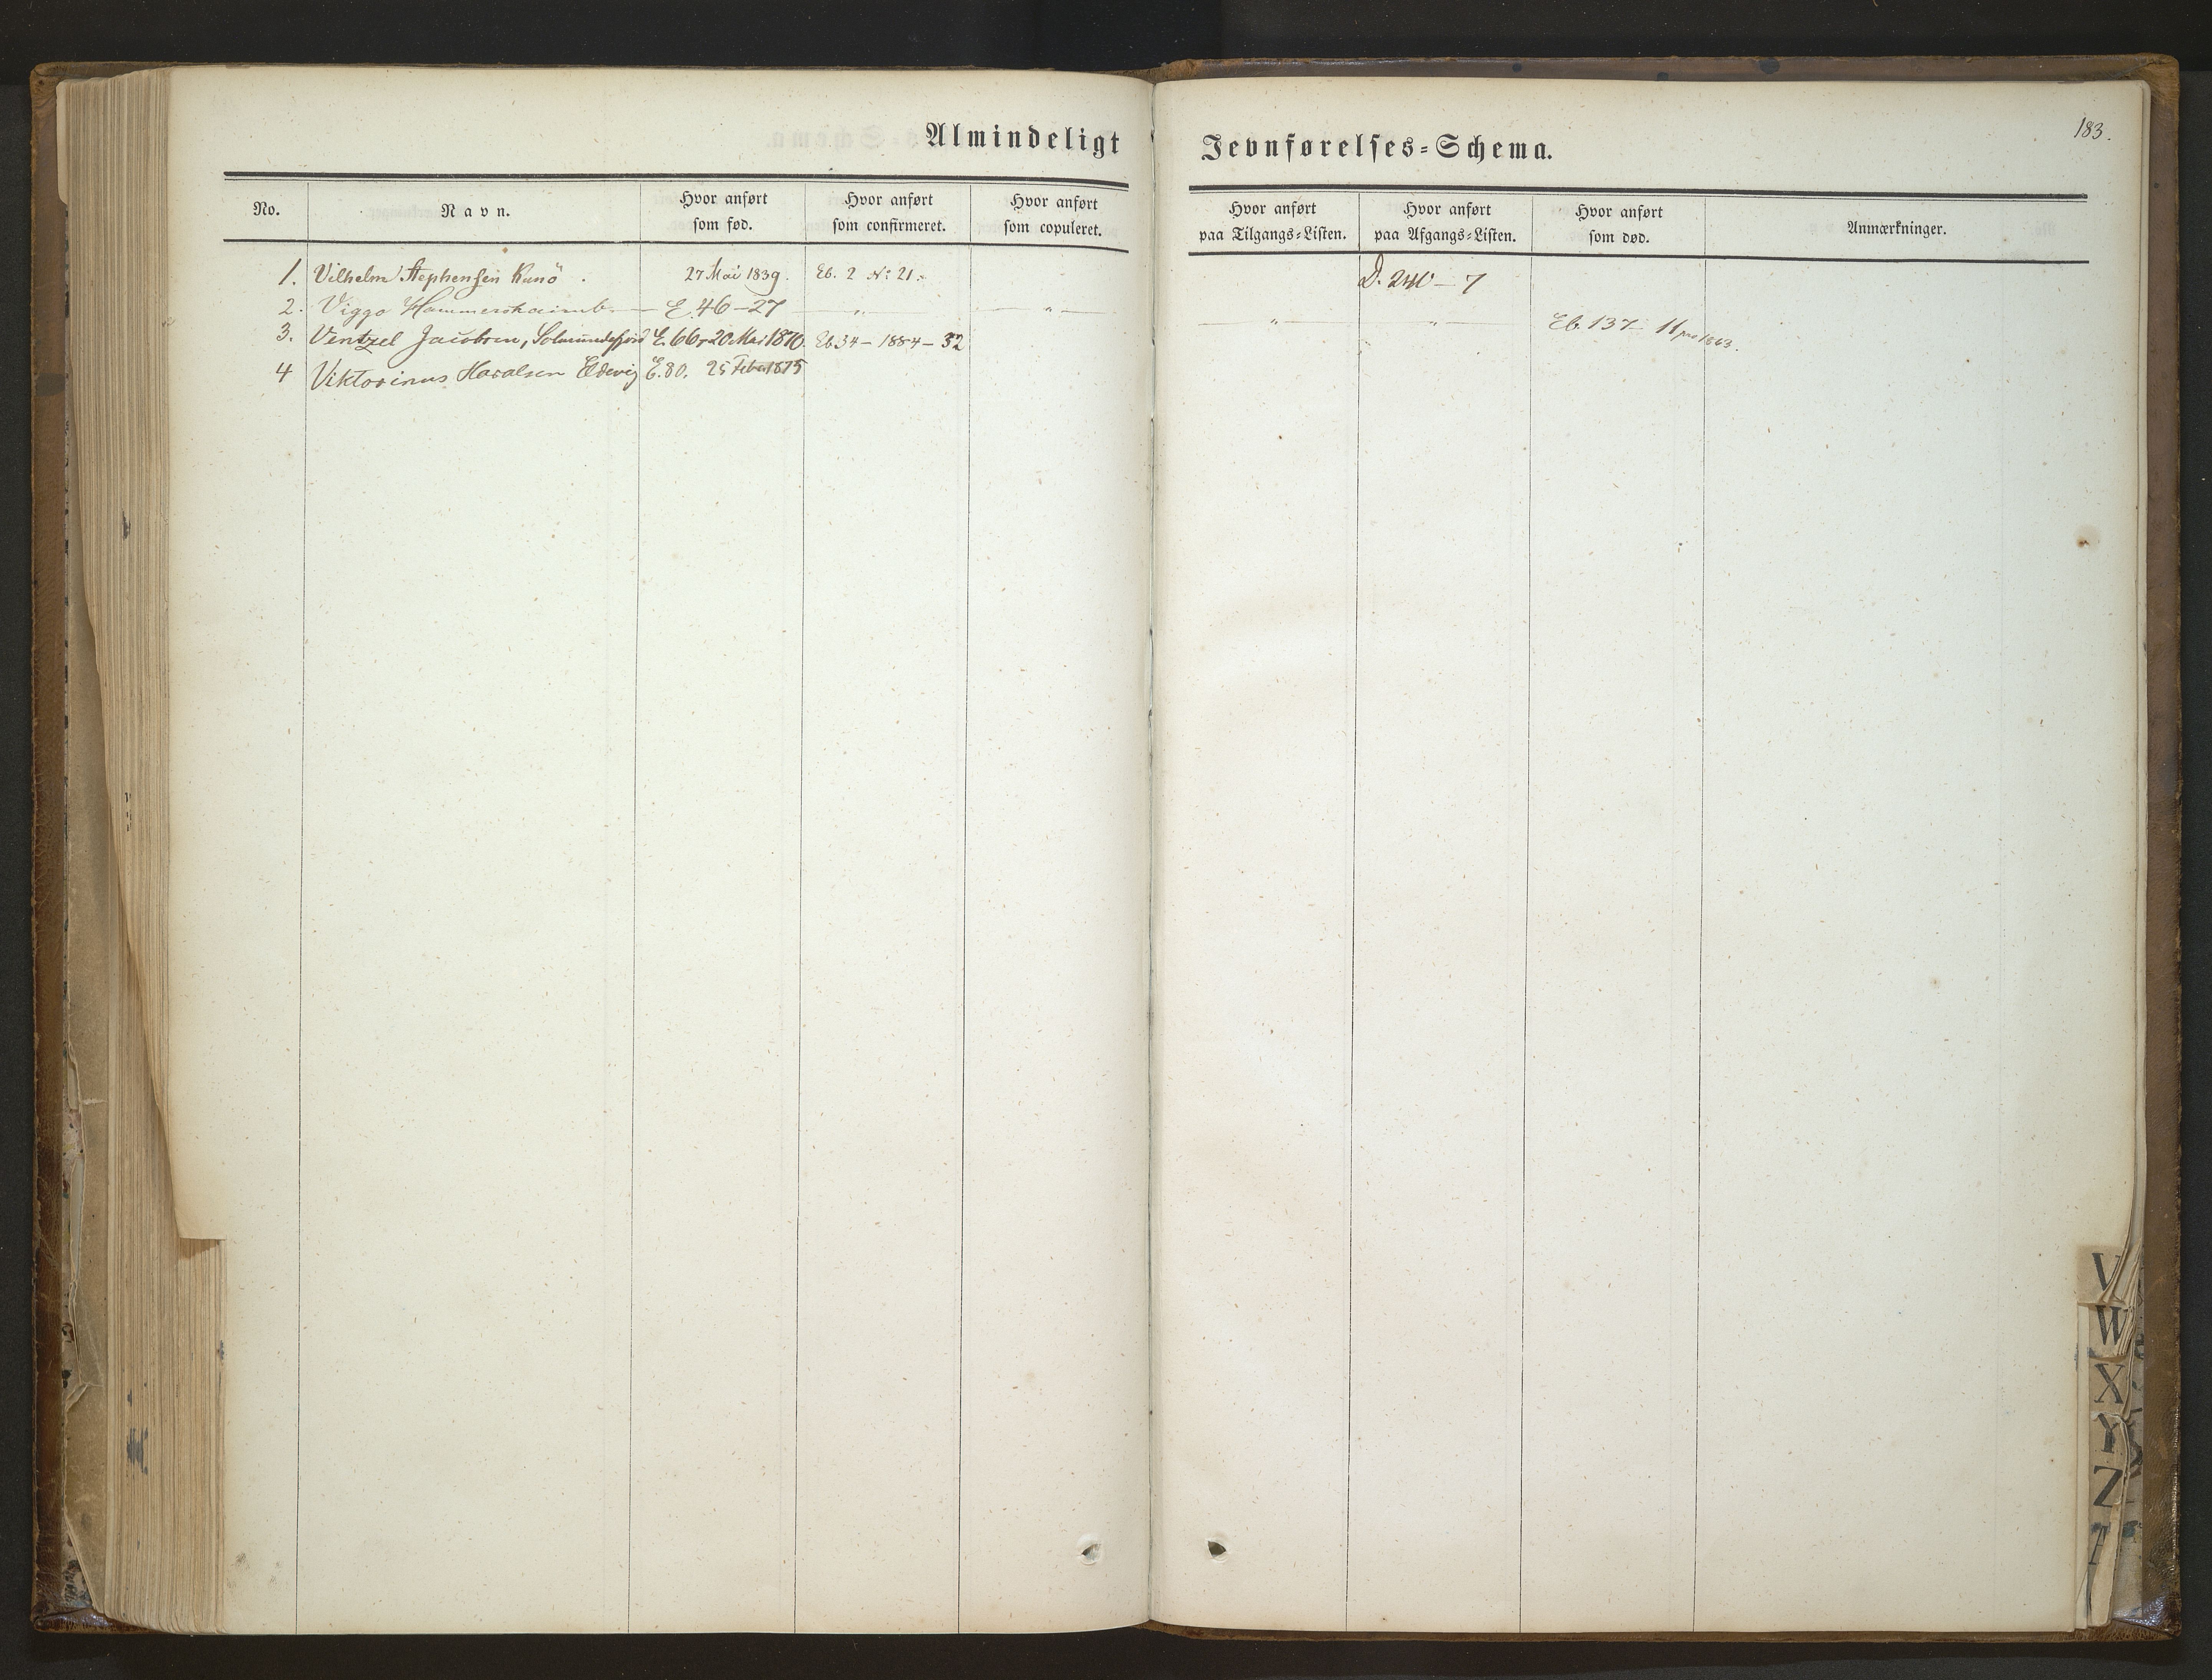 183.
Almindeligt Jevnførelses=Schema.
No. Navn. Hvor anført som fød. Hvor anført som confirmeret. Hvor anført som copuleret. Hvor anført paa Tilgangs=Listen. Hvor anført paa Afgangs=Listen. Hvor anført som død. Anmærkninger.
1. Vilhelm Stephensen Kunö. 27 Mai 1839. Eb. 2 No 21. D. 240 – 7
2. Viggo Hammershaimb. — E. 46 – 27 — „ — — „ — — „ — — „ — Eb. 137 – 11 1863.
3. Ventzel Jacobsen, E. 66, 20 Mai 1870. Eb 34 – 1884 – 32
4 Viktorinus Haralsen Eldevig E. 80. 25 Febr 1875
V
W
X
Y
Z